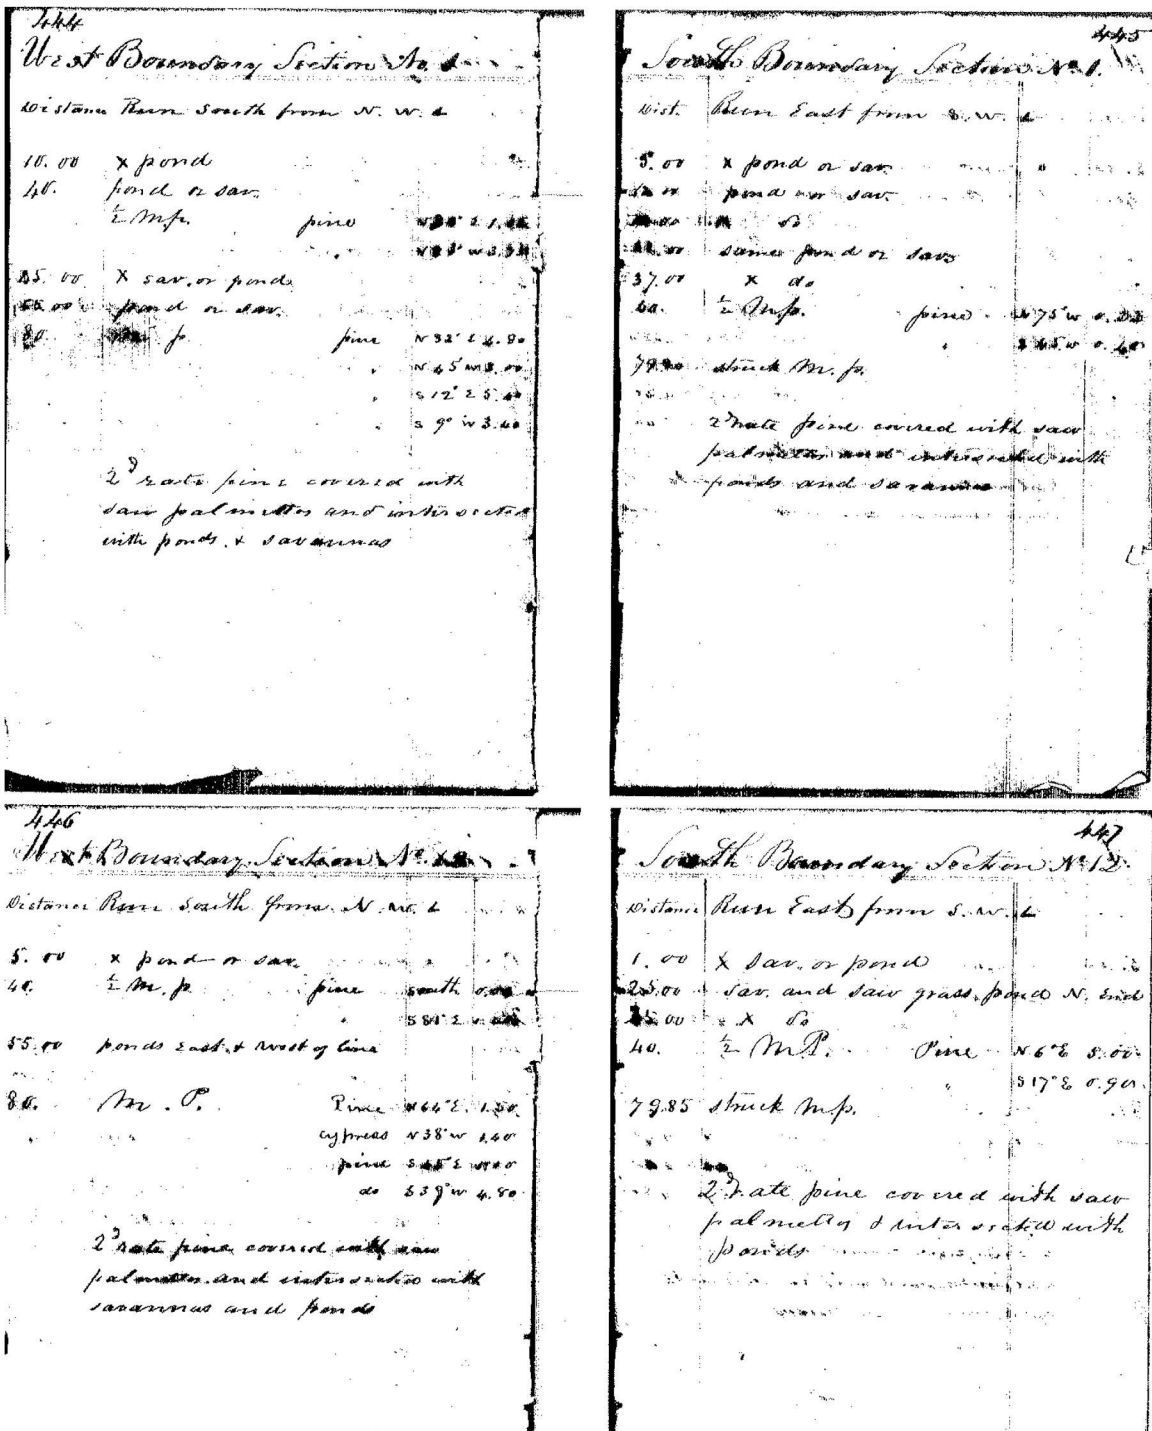 444
West Boundary Section No 1
Distance Run South from N. W. L
10.00 x pond
40. pond or sav.
½ M.p. pine
x sav. or ponds
pond or sav.
80. p pine N 32° E 4.80
" N 45 W 3.00
" S 12° E 5.
" S 9° W 3.40
2d rate pine covered with
saw palmettos and intersected
with ponds & savannas
445
South Boundary Section No 1.
Dist. Run East from S. W. L
5.00 x pond or sav.
pond or sav.
do
same pond or sav.
37.00 x do
½ M.p. pine N 75 W
" W 0.40
struck M. p.
2d rate pine covered with saw
palmettos and intersected with
ponds and savannas
446
West Boundary Section No
Distance Run South from N. W. L
5.00 x pond or sav.
40. ½ M. p. pine south
"
55.00 ponds East & West of line
80. M. P. Pine N 64° E.
cypress N 38° W 1.40
pine
do S 39° W 4.80
2d rate pine covered with saw
palmettos and intersected with
savannas and ponds
447
South Boundary Section No 12.
Distance Run East from S. W. L
1.00 x sav. or pond
25.00 sav. and saw grass pond N. End
x do
40. ½ M.P. Pine N 6° E 5.00
" S 17° E 0.90
79.85 struck M.p.
2d rate pine covered with saw
palmetto & intersected with
ponds